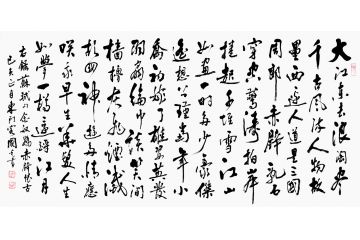 大江東去浪淘盡
千古風流人物故
壘西邊人道是三國
周郎赤壁亂石
穿空驚濤拍岸
捲起千堆雪江山
如畫一時多少豪傑
遙想公瑾當年小
喬初嫁了雄姿英發
羽扇綸巾談笑間
檣櫓灰飛煙滅
故國神遊多情應
笑我早生華髮人生
如夢一樽還酹江月
右錄蘇軾詞念奴嬌赤壁懷古
己亥三月